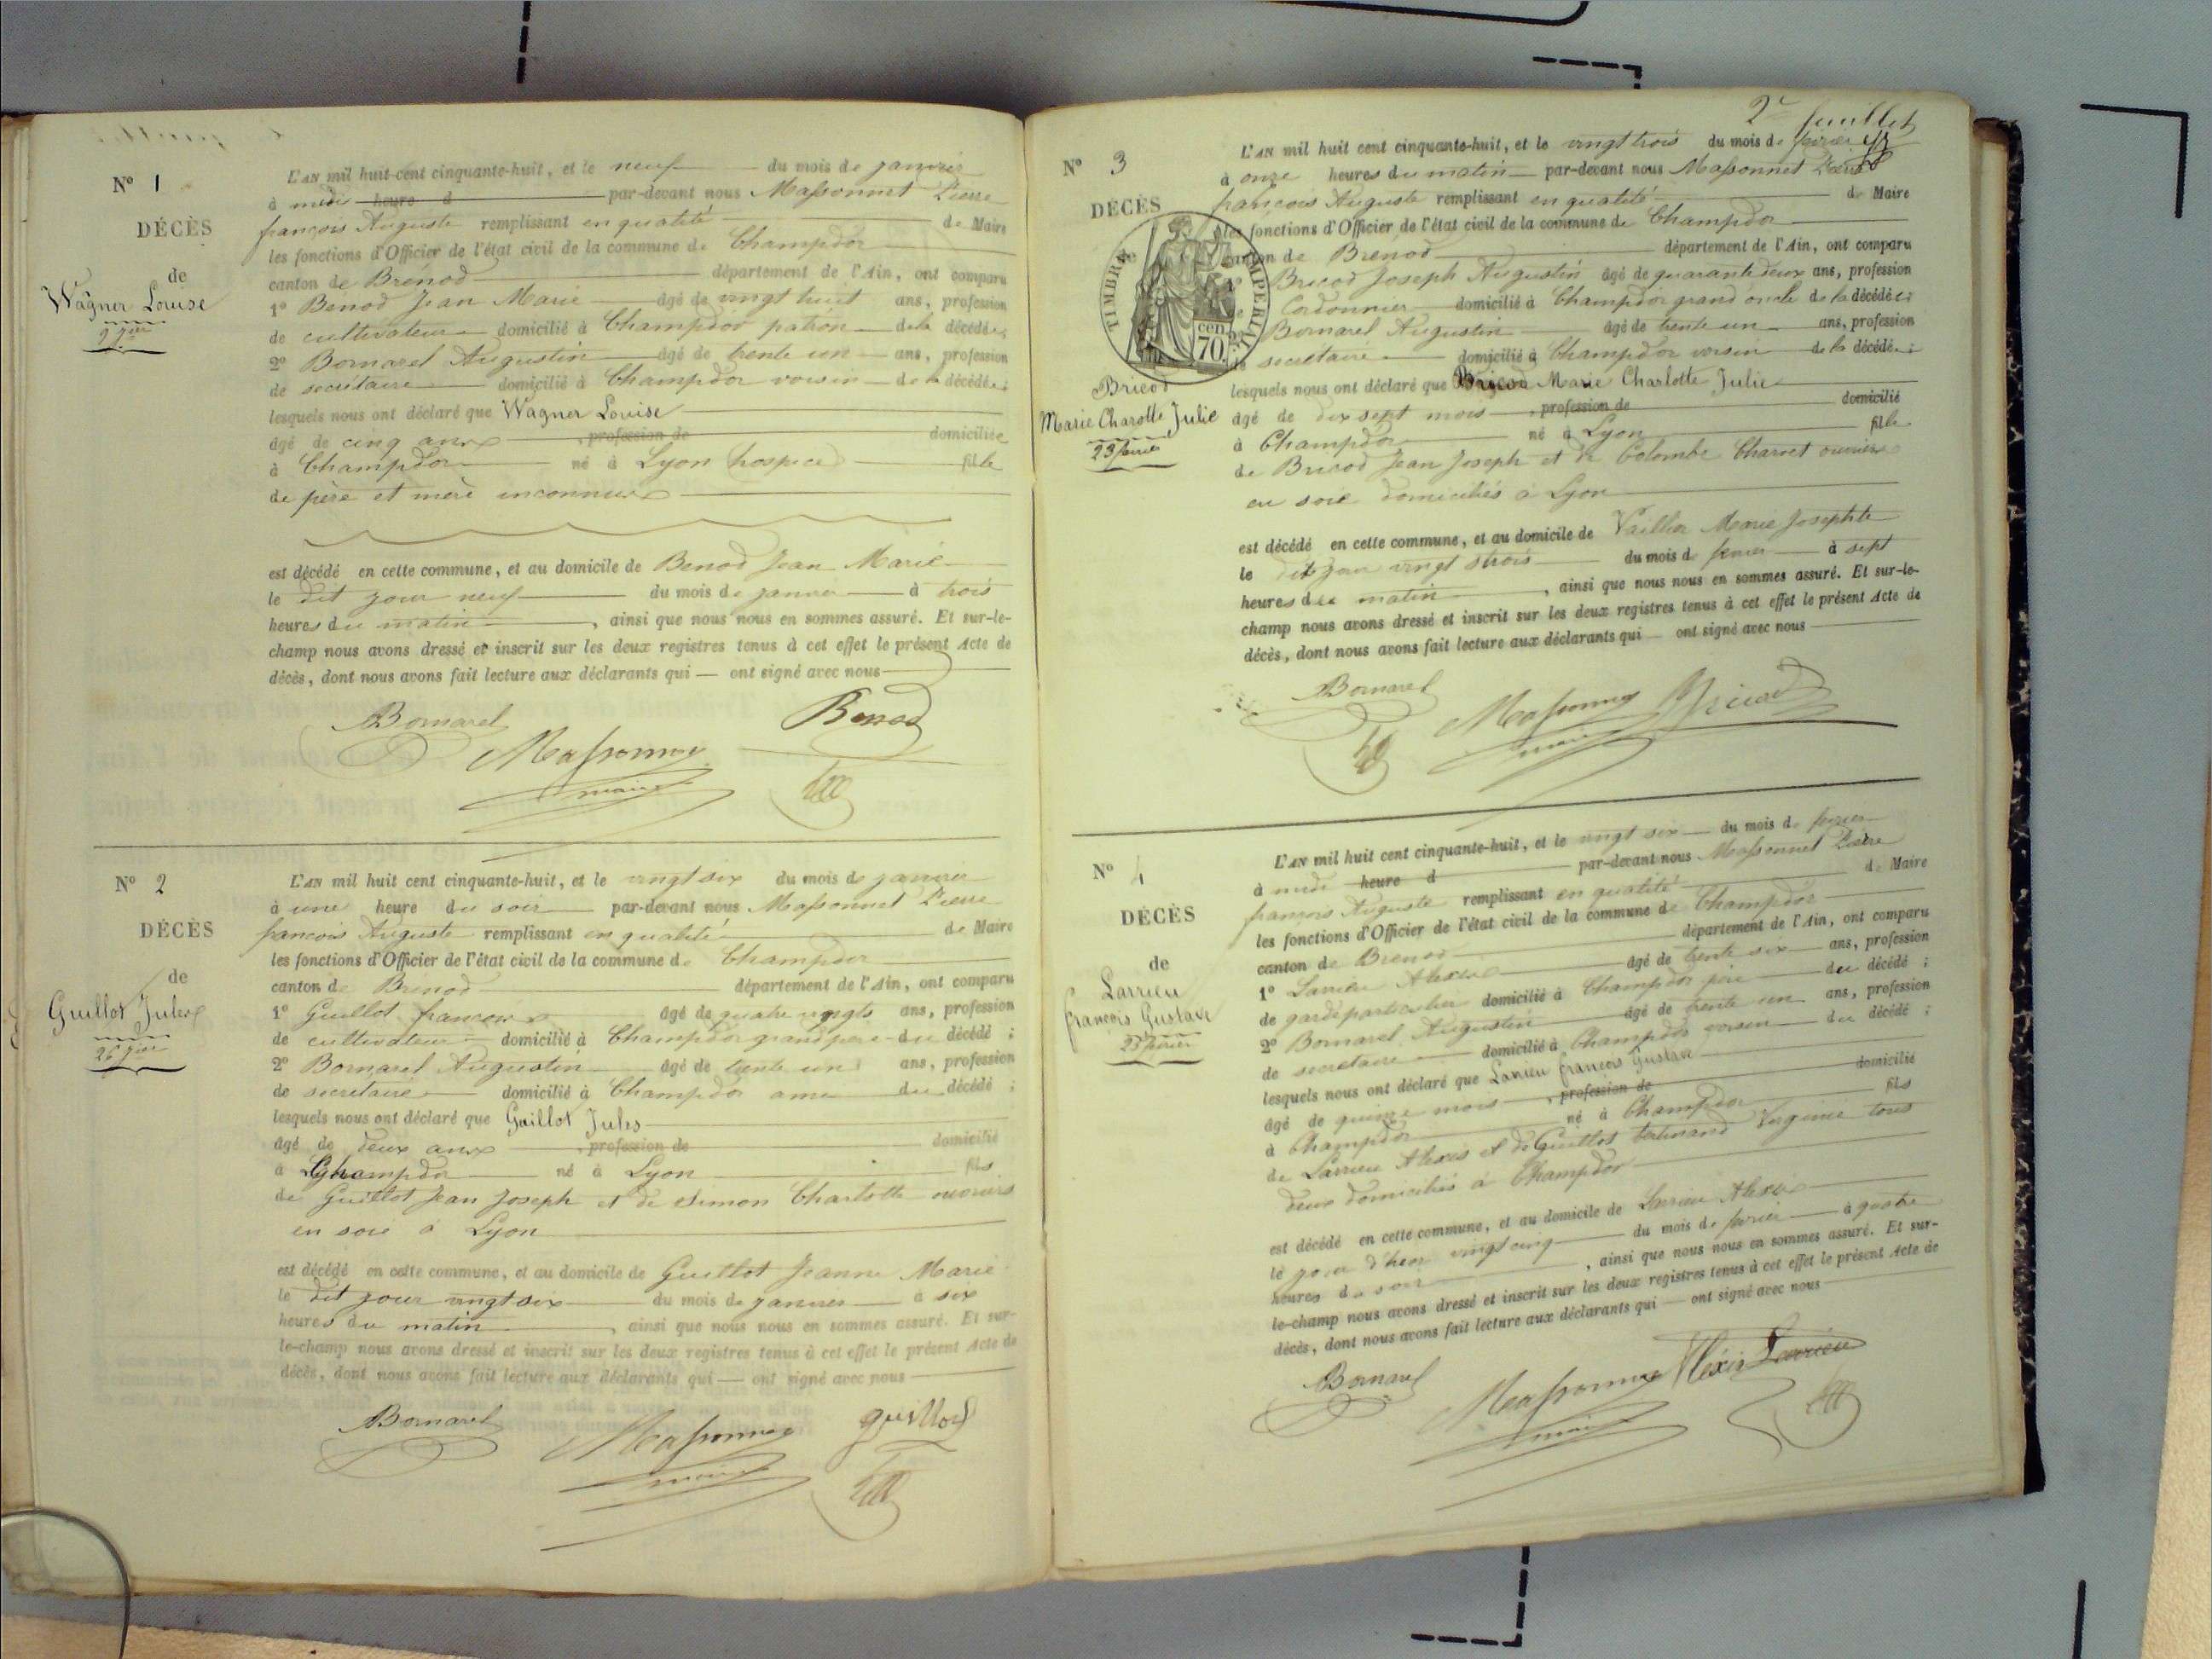 N° 1
DÉCÈS
de
Wagner Louise
9 Jer
L'AN mil huit cent cinquante-huit, et le neuf du mois de janvier
à midi heure d par-devant nous Massonnet Pierre
françois Auguste remplissant en qualité de Maire
les fonctions d'Officier de l'état civil de la commune de Champdor
canton de Brénod département de l'Ain, ont comparu
1° Benod Jean Marie âgé de vingt huit ans, profession
de cultivateur domicilié à Champdor patron de la décédée;
2° Bornarel Augustin âgé de trente un ans, profession
de secrétaire domicilié à Champdor voisin de la décédée;
lesquels nous ont déclaré que Wagner Louise
âgé de cinq ans , profession de domiciliée
à Champdor né à Lyon hospice fille
de père et mère inconnus
est décédé en cette commune, et au domicile de Benod Jean Marie
le dit jour neuf du mois de janvier à trois
heures du matin , ainsi que nous nous en sommes assuré. Et sur-le-
champ nous avons dressé et inscrit sur les deux registres tenus à cet effet le présent Acte de
décès, dont nous avons fait lecture aux déclarants qui — ont signé avec nous
Bornarel Massonnet Benod
maire
N° 2
DÉCÈS
de
Guillot Jules
26 Jer
L'AN mil huit cent cinquante-huit, et le vingt six du mois de janvier
à une heure du soir par-devant nous Massonnet Pierre
françois Auguste remplissant en qualité de Maire
les fonctions d'Officier de l'état civil de la commune de Champdor
canton de Brenod département de l'Ain, ont comparu
1° Guillot françois âgé de quatre vingts ans, profession
de cultivateur domicilié à Champdor grand père du décédé ;
2° Bornarel Augustin âgé de trente un ans, profession
de secrétaire domicilié à Champdor ami du décédé ;
lesquels nous ont déclaré que Guillot Jules
âgé de deux ans , profession de domicilié
à Champdor né à Lyon fils
de Guillot Jean Joseph et de Simon Charlotte ouvriers
en soie à Lyon
est décédé en cette commune, et au domicile de Guillot Jeanne Marie
le dit jour vingt six du mois de janvier à six
heures du matin , ainsi que nous nous en sommes assuré. Et sur-
le-champ nous avons dressé et inscrit sur les deux registres tenus à cet effet le présent Acte de
décès, dont nous avons fait lecture aux déclarants qui — ont signé avec nous
Bornarel Massonnet guillot
maire
2e feuillet
N° 3
DÉCÈS
de
TIMBRE IMPERIAL
cen
70
Bricod
Marie Charolte Julie
23 fevrier
L'AN mil huit cent cinquante-huit, et le vingt trois du mois de février
à onze heures du matin par-devant nous Massonnet Pierre
françois Auguste remplissant en qualité de Maire
les fonctions d'Officier de l'état civil de la commune de Champdor
canton de Brenod département de l'Ain, ont comparu
1° Bricod Joseph Augustin âgé de quarante deux ans, profession
de Cordonnier domicilié à Champdor grand oncle de la décédée;
2° Bornarel Augustin âgé de trente un ans, profession
de secrétaire domicilié à Champdor voisin de la décédée;
lesquels nous ont déclaré que Bricod Marie Charlotte Julie
âgé de dix sept mois , profession de domicilié
à Champdor né à Lyon fille
de Bricod Jean Joseph et de Colombe Charvet ouvriers
en soie domiciliés à Lyon
est décédé en cette commune, et au domicile de Vaillier Marie Josephte
le dit jour vingt trois du mois de fevrier à sept
heures du matin , ainsi que nous nous en sommes assuré. Et sur-le-
champ nous avons dressé et inscrit sur les deux registres tenus à cet effet le présent Acte de
décès, dont nous avons fait lecture aux déclarants qui — ont signé avec nous
Bornarel Massonnet Bricod
maire
N° 4
DÉCÈS
de
Larrieu
françois Gustave
25 fevrier
L'AN mil huit cent cinquante-huit, et le vingt six du mois de fevrier
à midi heure d par-devant nous Massonnet Pierre
françois Auguste remplissant en qualité de Maire
les fonctions d'Officier de l'état civil de la commune de Champdor
canton de Brenod département de l'Ain, ont comparu
1° Larrieu Alexis âgé de trente six ans, profession
de garde particulier domicilié à Champdor père du décédé ;
2° Bornarel Augustin âgé de trente un ans, profession
de secretaire domicilié à Champdor voisin du décédé ;
lesquels nous ont déclaré que Larrieu françois Gustave
âgé de quinze mois , profession de domicilié
à Champdor né à Champdor fils
de Larrieu Alexis et de Guillot ferdinand Virginie tous
deux domiciliés à Champdor
est décédé en cette commune, et au domicile de Larrieu Alexis
le jour d'hier vingt cinq du mois de fevrier à quatre
heures du soir , ainsi que nous nous en sommes assuré. Et sur-
le-champ nous avons dressé et inscrit sur les deux registres tenus à cet effet le présent Acte de
décès, dont nous avons fait lecture aux déclarants qui — ont signé avec nous
Bornarel Massonnet Alexis Larrieu
maire